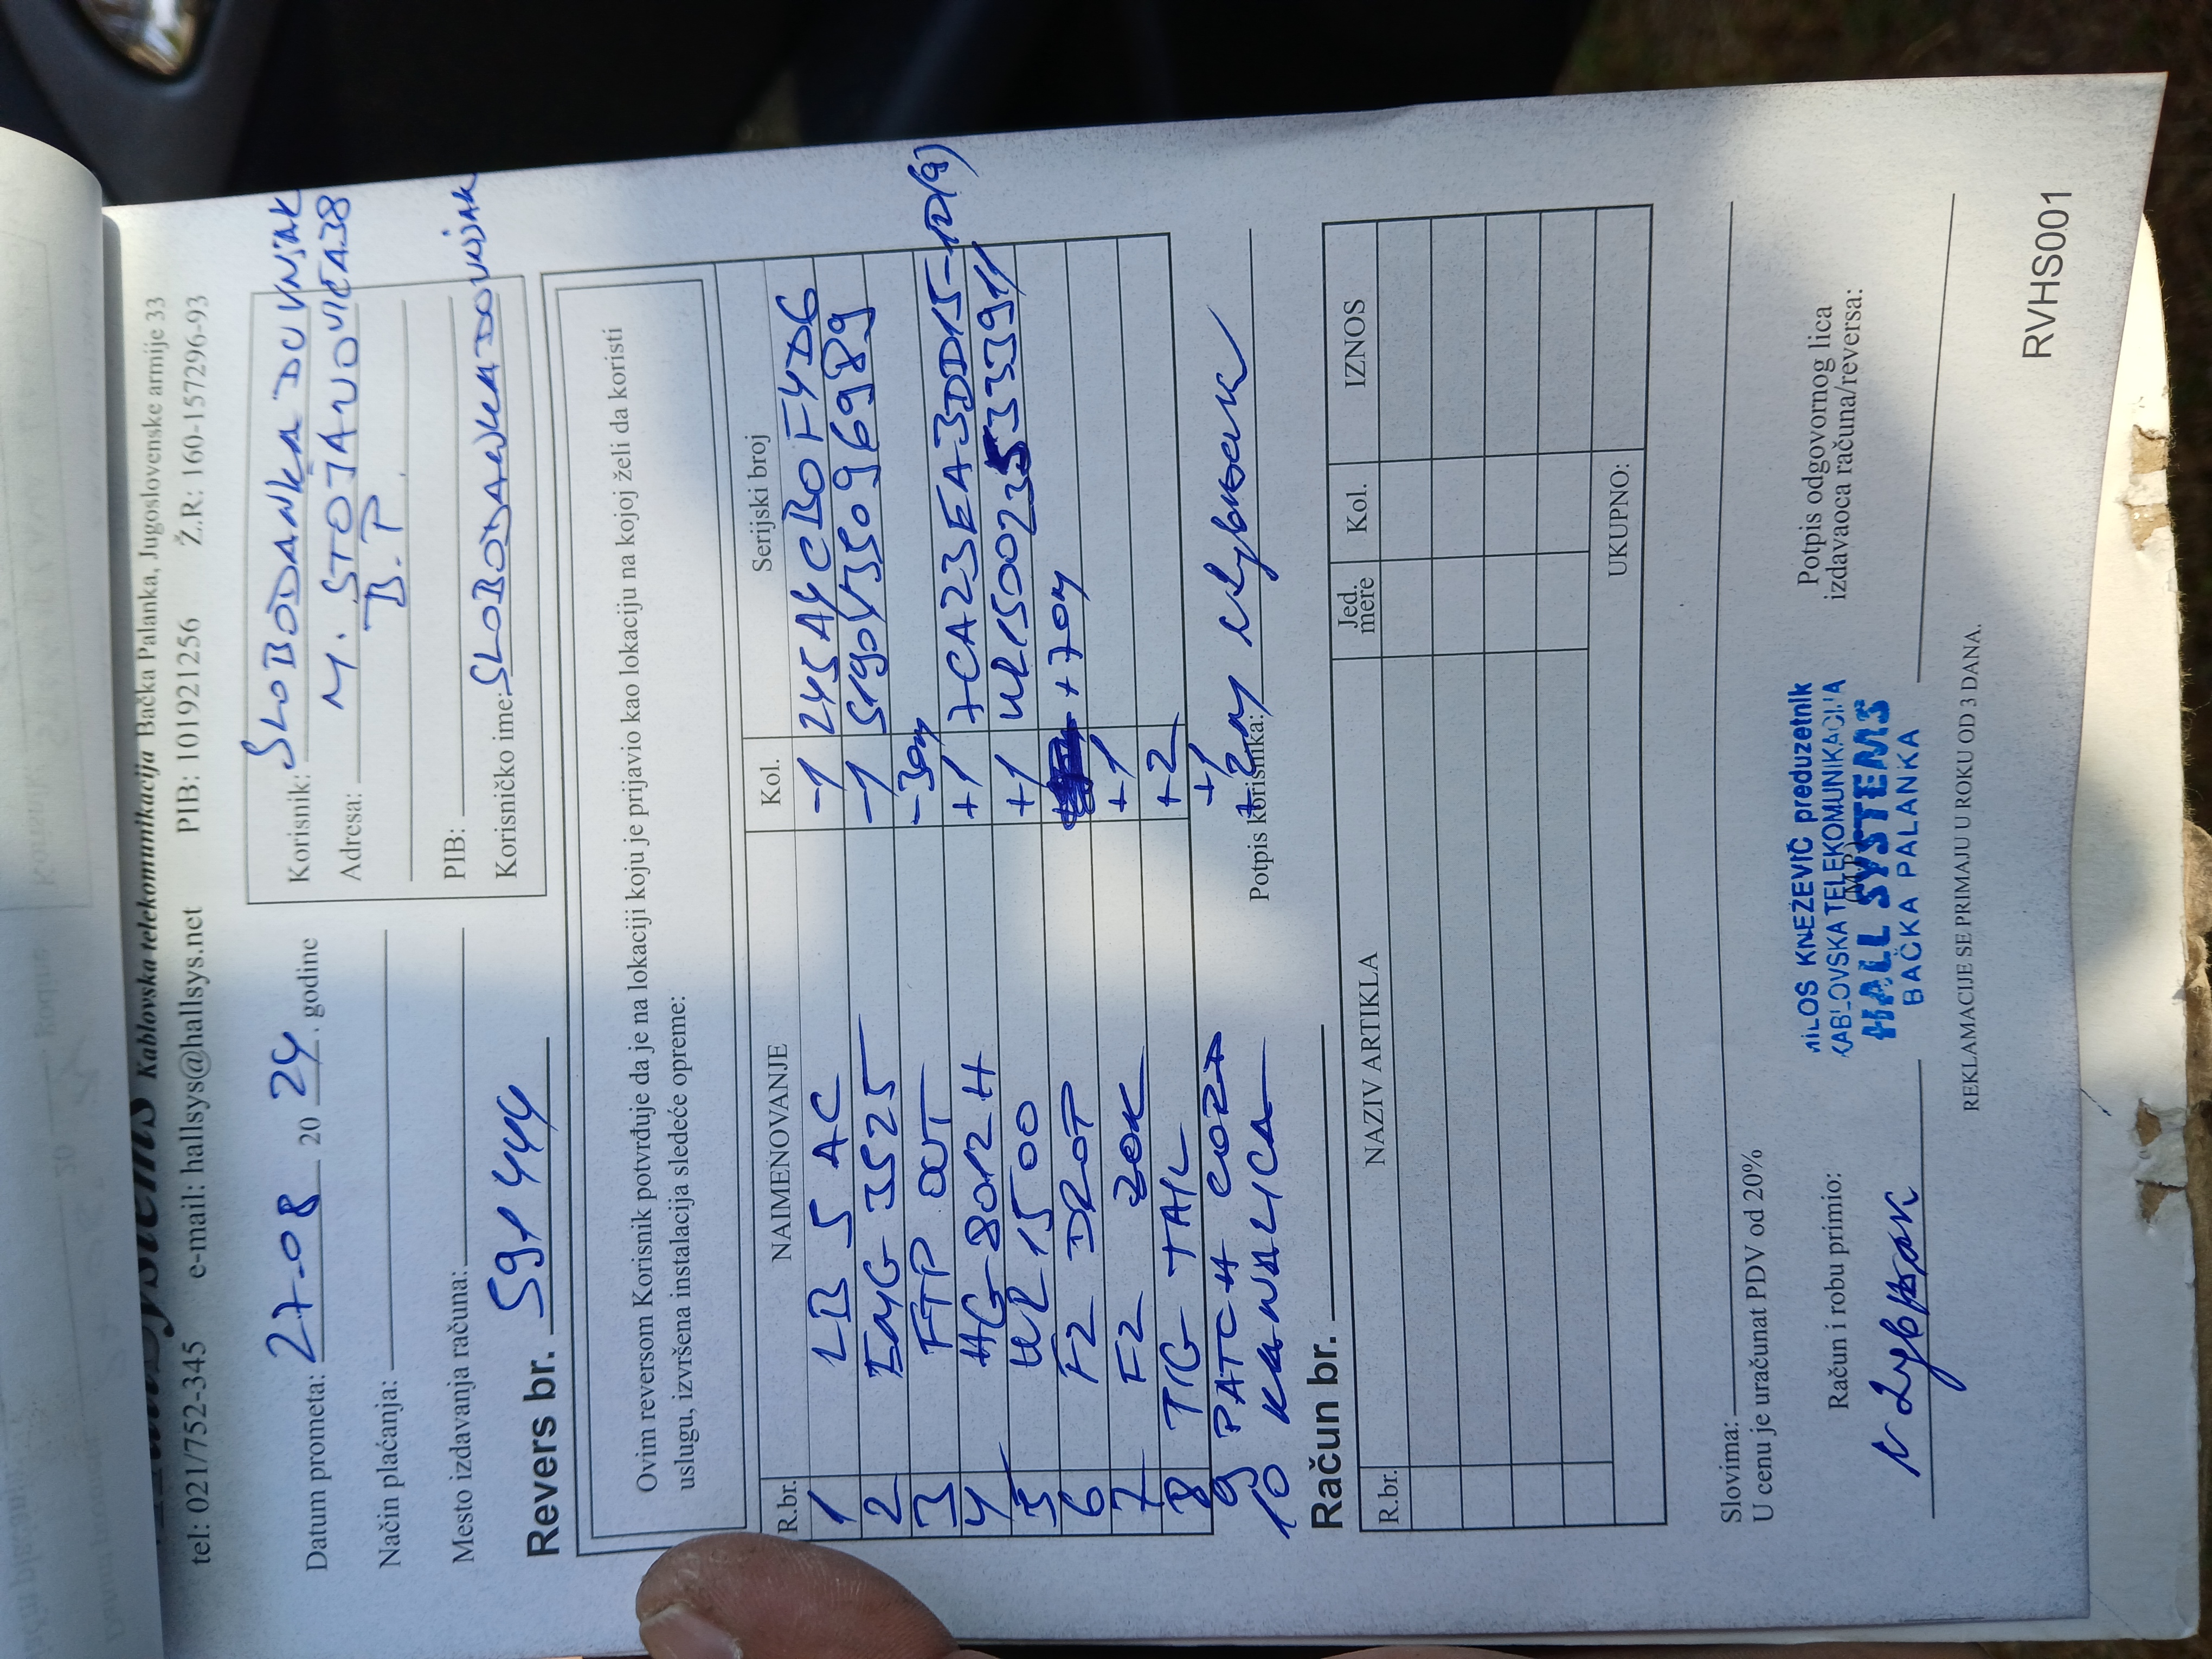 Kablovska telekomunikacija Bačka Palanka, Jugoslovenske armije 33
tel: 021/752-345 e-mail: hallsys@hallsys.net PIB: 101921256 Ž.R: 160-157296-93
Datum prometa: 27-08 2024. godine
Način plaćanja:
Mesto izdavanja računa:
Korisnik: SLOBODANKA DUVNJAK
Adresa: M. STOJANOVIĆA 38
B.P.
PIB:
Korisničko ime: SLOBODANKADUVNJAK
Revers br. 591444
Ovim reversom Korisnik potvrđuje da je na lokaciji koju je prijavio kao lokaciju na kojoj želi da koristi
uslugu, izvršena instalacija sledeće opreme:
R.br. NAIMENOVANJE Kol. Serijski broj
1 LB 5 AC -1 245A4CB0F4D6
2 EMG 3525 -1
3 FTP OUT -30m
4 HG-8012H +1 7CA23EA3DD15-12(9)
5 WR1500 +1
6 F2 DROP +70m
7 F2 ZOK +1
8 PIG TAIL +2
9 PATCH CORD +1
10 KANALICA +2m
Potpis korisnika:
Račun br.
R.br. NAZIV ARTIKLA Jed. mere Kol. IZNOS
UKUPNO:
Slovima:
U cenu je uračunat PDV od 20%
Račun i robu primio:
(M.P.)
Potpis odgovornog lica
izdavaoca računa/reversa:
MILOŠ KNEŽEVIĆ preduzetnik
KABLOVSKA TELEKOMUNIKACIJA
HALL SYSTEMS
BAČKA PALANKA
REKLAMACIJE SE PRIMAJU U ROKU OD 3 DANA.
RVHS001